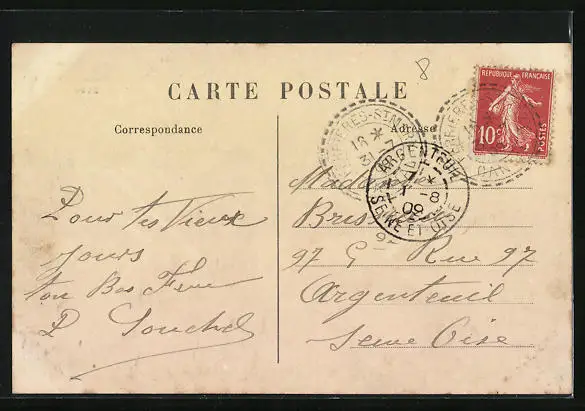 8
CARTE POSTALE
RÉPUBLIQUE FRANÇAISE
10c
POSTES
Correspondance
Adresse
16 *
31-7
ARGENTEUIL
1-8
09
SEINE ET OISE
Pour tes Vieux
jours
ton
P Souchet
Madame
97 G Rue 97
Argenteuil
Seine Oise